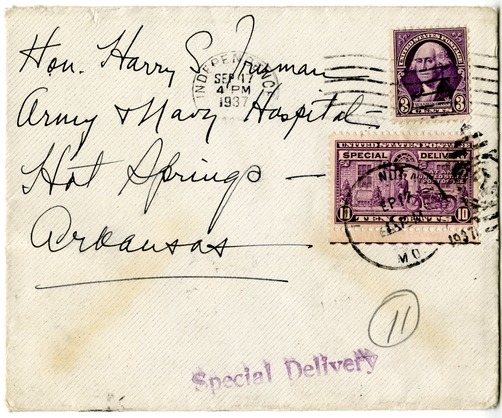 Hon. Harry S. Truman
Army & Navy Hospital -
Hot Springs -
Arkansas -
INDEPENDENCE
SEP 17
4 PM
1937
UNITED STATES POSTAGE
3 3
UNITED STATES POSTAGE
SPECIAL DELIVERY
10 TEN CENTS 10
SEP 17
1937
MO.
11
Special Delivery